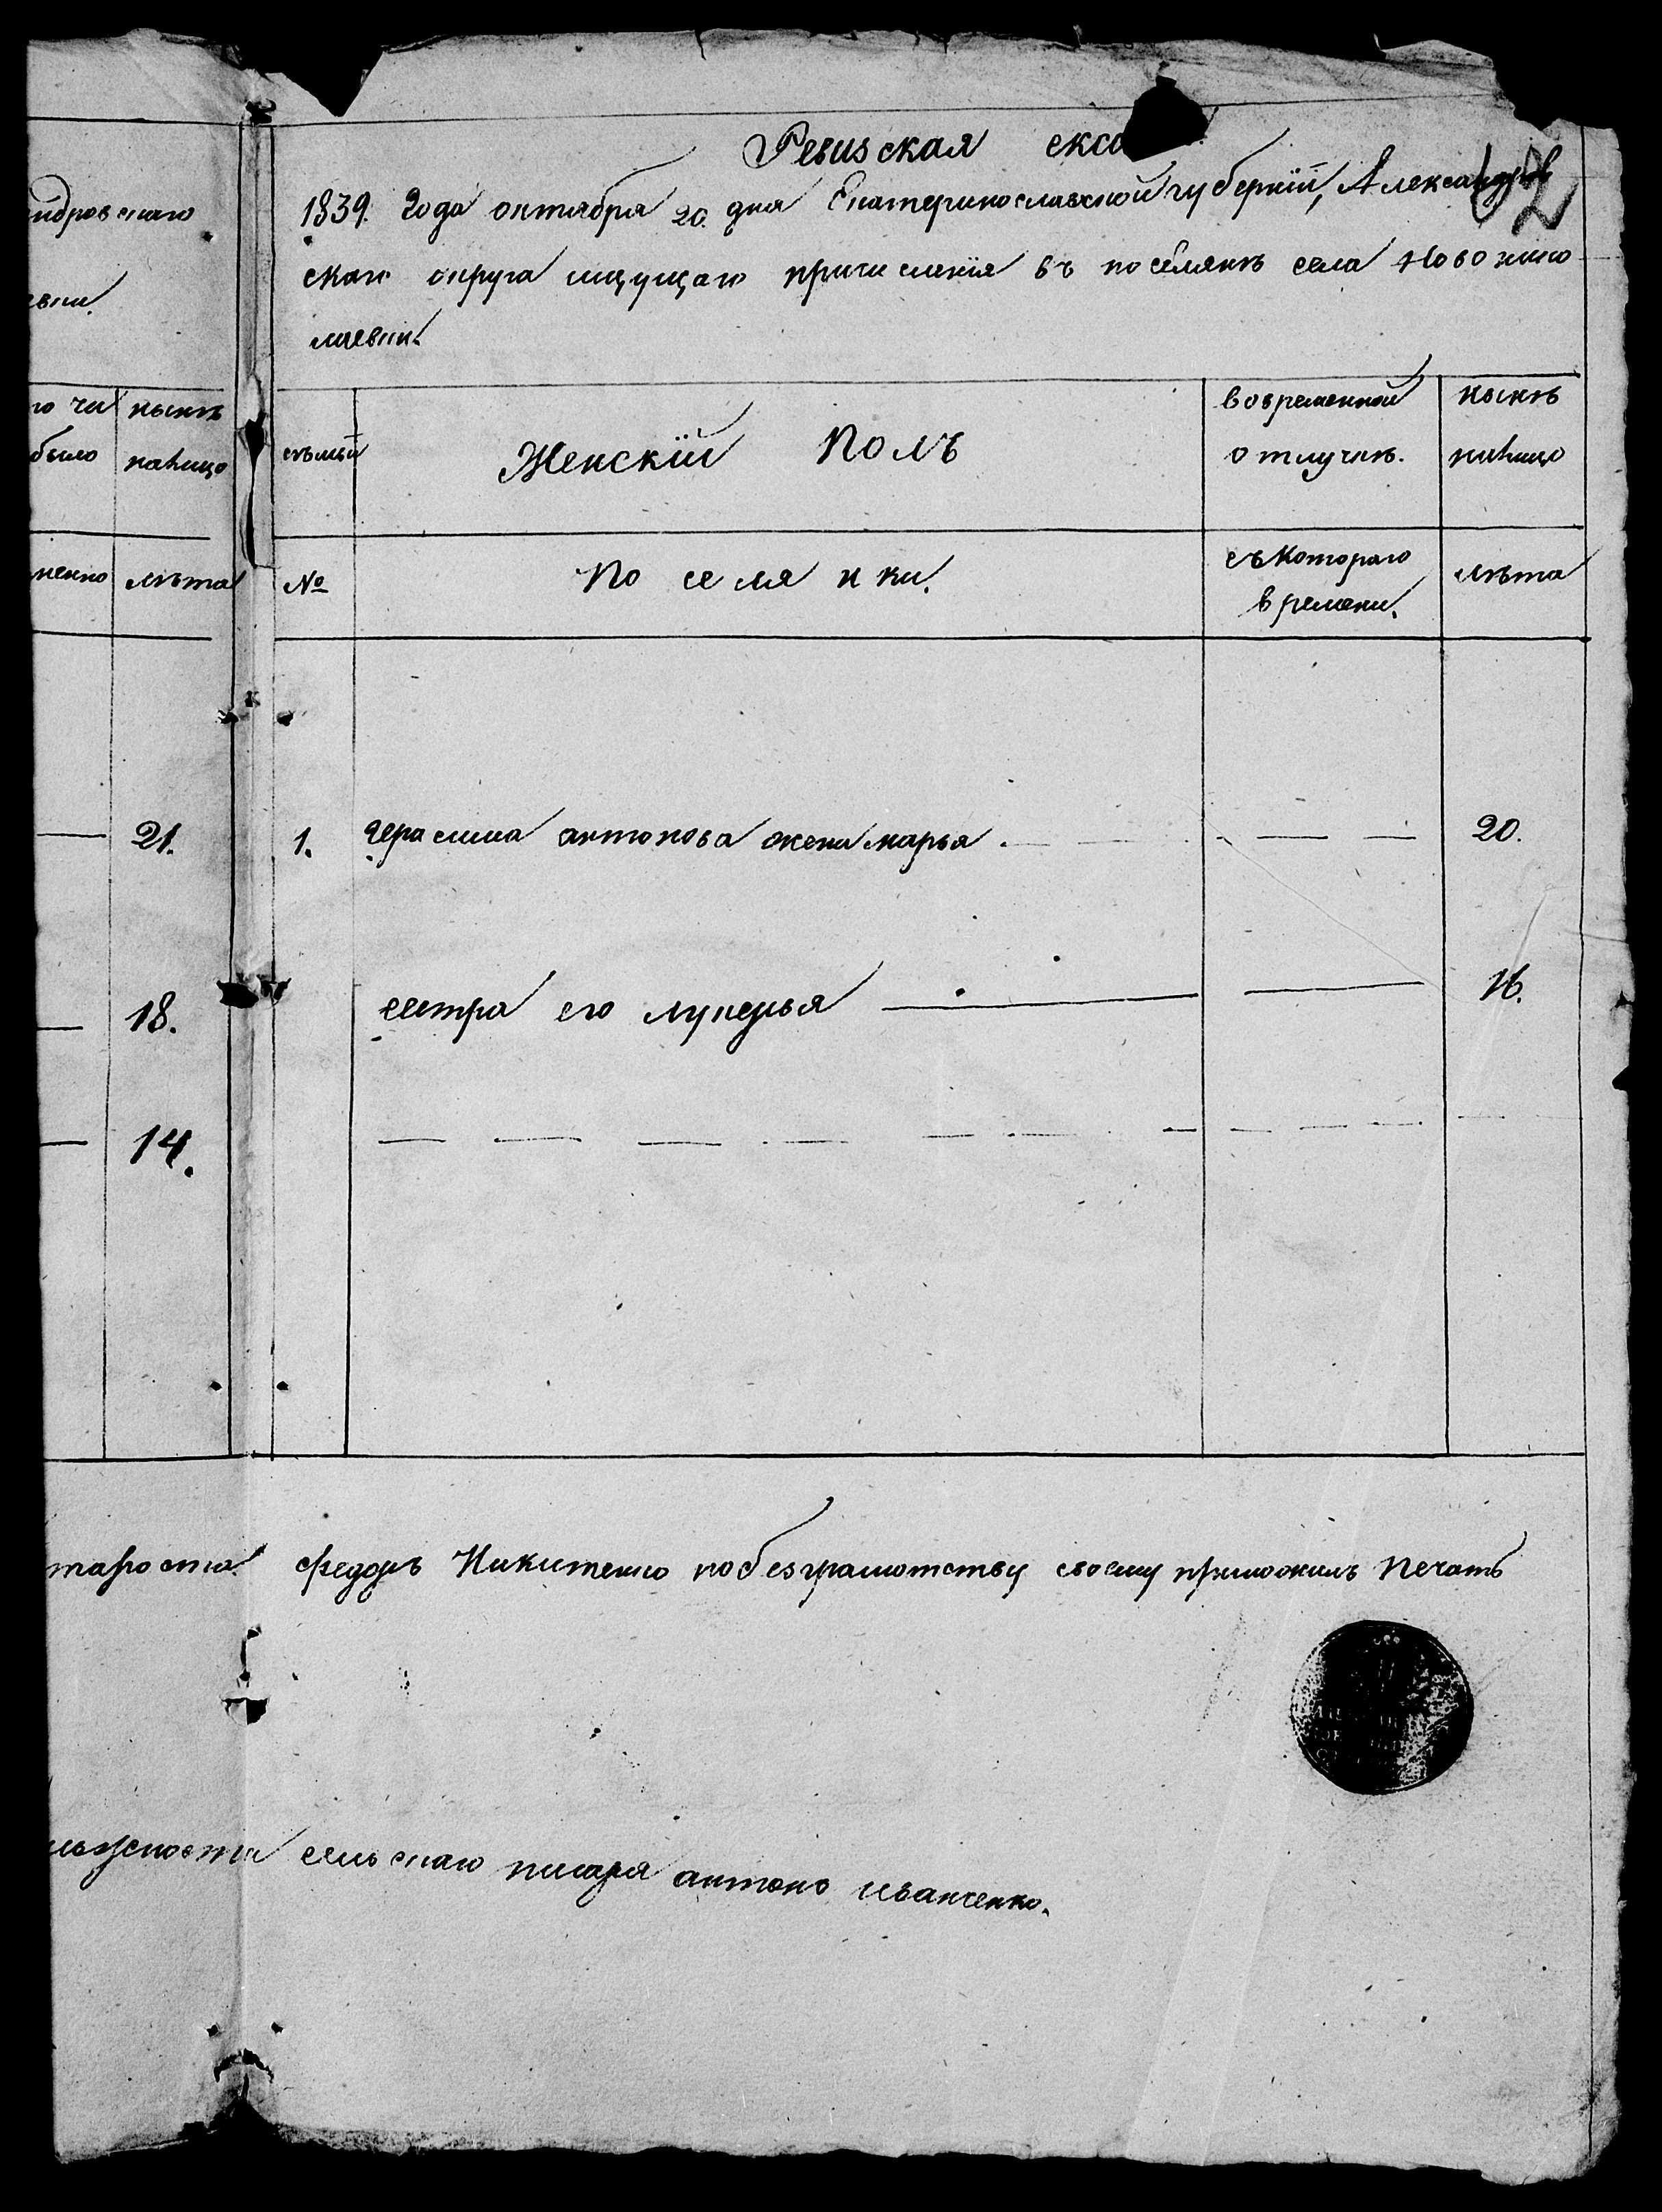 Ревизская ска
1839. Года октября 20. дня Екатеринославской губернїй, Александров
скаго округа ищущаго причисленїя въ поселянъ села Новонико
лаевки.
ндровскаго
евки.
го чи
было
нынъ
налицо
семьи
Женскїй Полъ
вовременной
отлучкъ.
нынъ
налицо
менно
лъта
№
Поселянки.
съкотораго
времени.
лъта
21.
1. герасима антонова жена марья.
20.
18.
сестра его лукерья
16.
14.
тароста федоръ Никитенко побезграмотству своему приложилъ печать
сельскаго писаря антонъ иванченко.